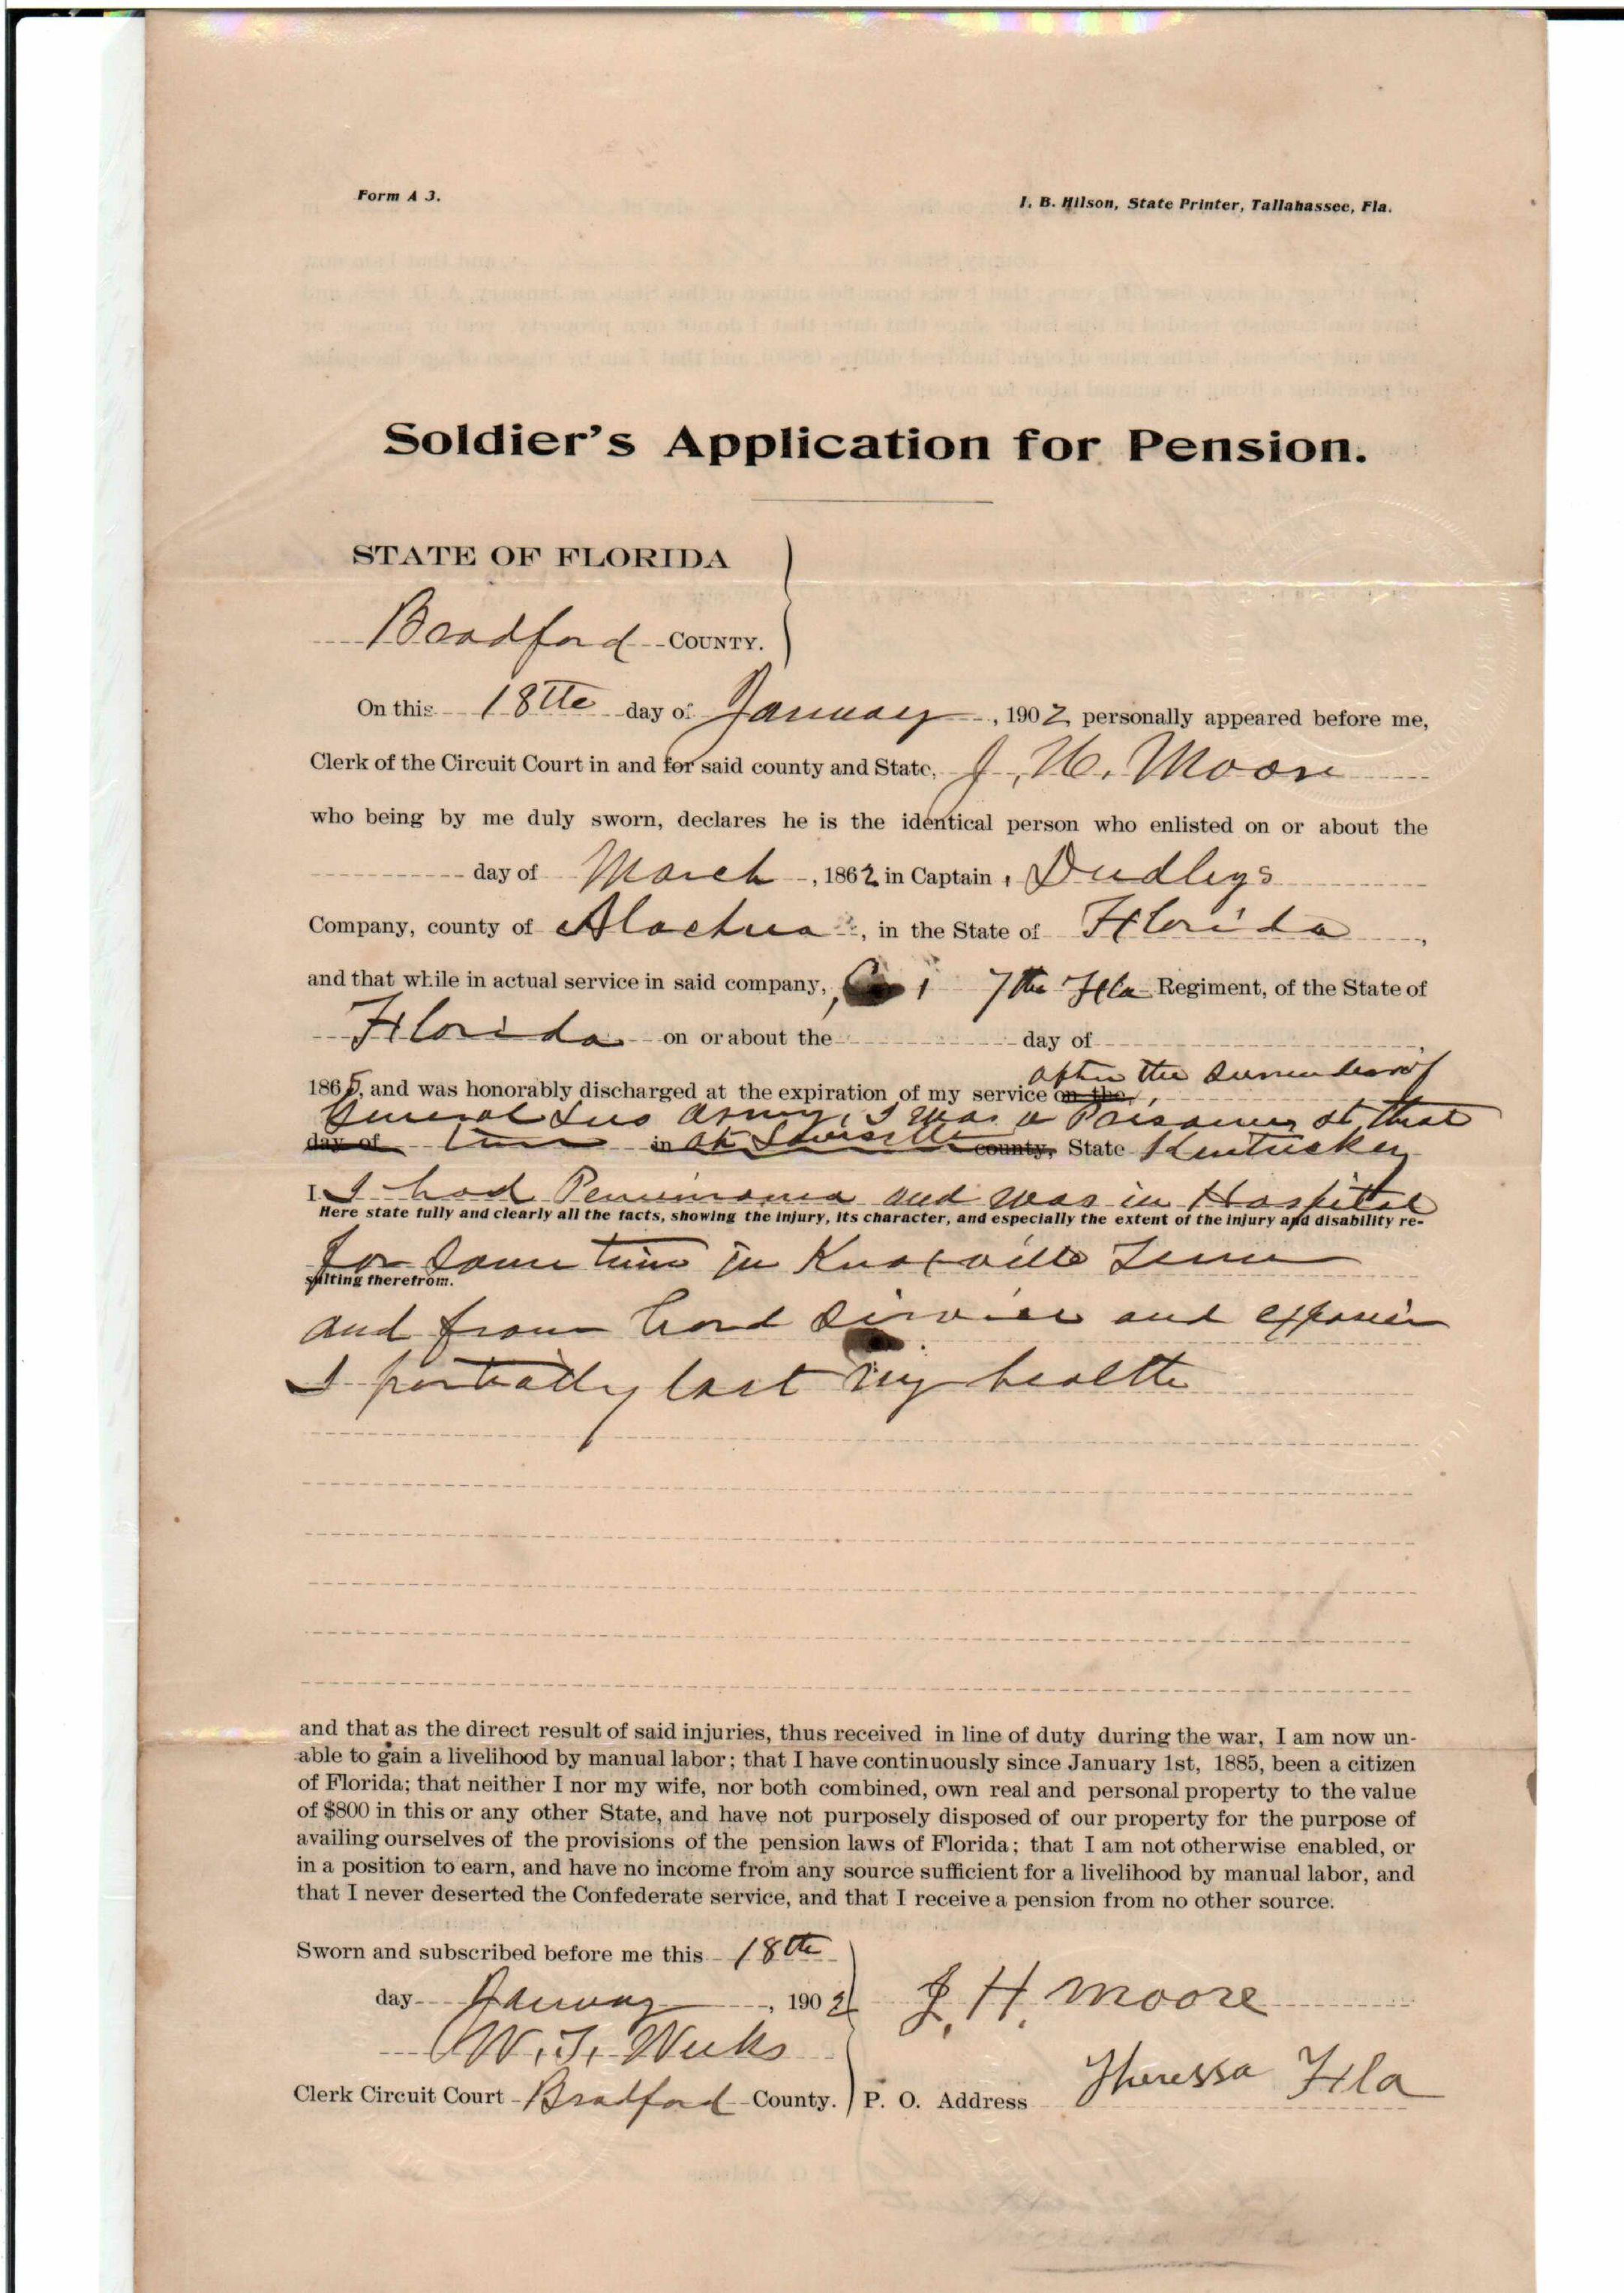 Form A 3.
I. B. Hilson, State Printer, Tallahassee, Fla.
Soldier's Application for Pension.
STATE OF FLORIDA
Bradford COUNTY.
On this 18th day of January, 1902, personally appeared before me,
Clerk of the Circuit Court in and for said county and State, J. H. Moore
who being by me duly sworn, declares he is the identical person who enlisted on or about the
day of March, 1862 in Captain, Dudleys
Company, county of Alachua, in the State of Florida,
and that while in actual service in said company, 7th Fla Regiment, of the State of
Florida on or about the day of
after the Surrender of
1865, and was honorably discharged at the expiration of my service on the
General Lees Army, I was a Prisoner at that
day of time in at Louisville county, State Kentuckey
I I had Penumonia and was in Hospital
Here state fully and clearly all the facts, showing the injury, its character, and especially the extent of the injury and disability re-
for some time in Knoxville Tenn
sulting therefrom.
and from hard Service and
I partially lost my health
and that as the direct result of said injuries, thus received in line of duty during the war, I am now un-
able to gain a livelihood by manual labor; that I have continuously since January 1st, 1885, been a citizen
of Florida; that neither I nor my wife, nor both combined, own real and personal property to the value
of $800 in this or any other State, and have not purposely disposed of our property for the purpose of
availing ourselves of the provisions of the pension laws of Florida; that I am not otherwise enabled, or
in a position to earn, and have no income from any source sufficient for a livelihood by manual labor, and
that I never deserted the Confederate service, and that I receive a pension from no other source.
Sworn and subscribed before me this 18th
day January, 1902
J. H. Moore
W. T. Weeks
Clerk Circuit Court Bradford County.
P. O. Address Theressa Fla